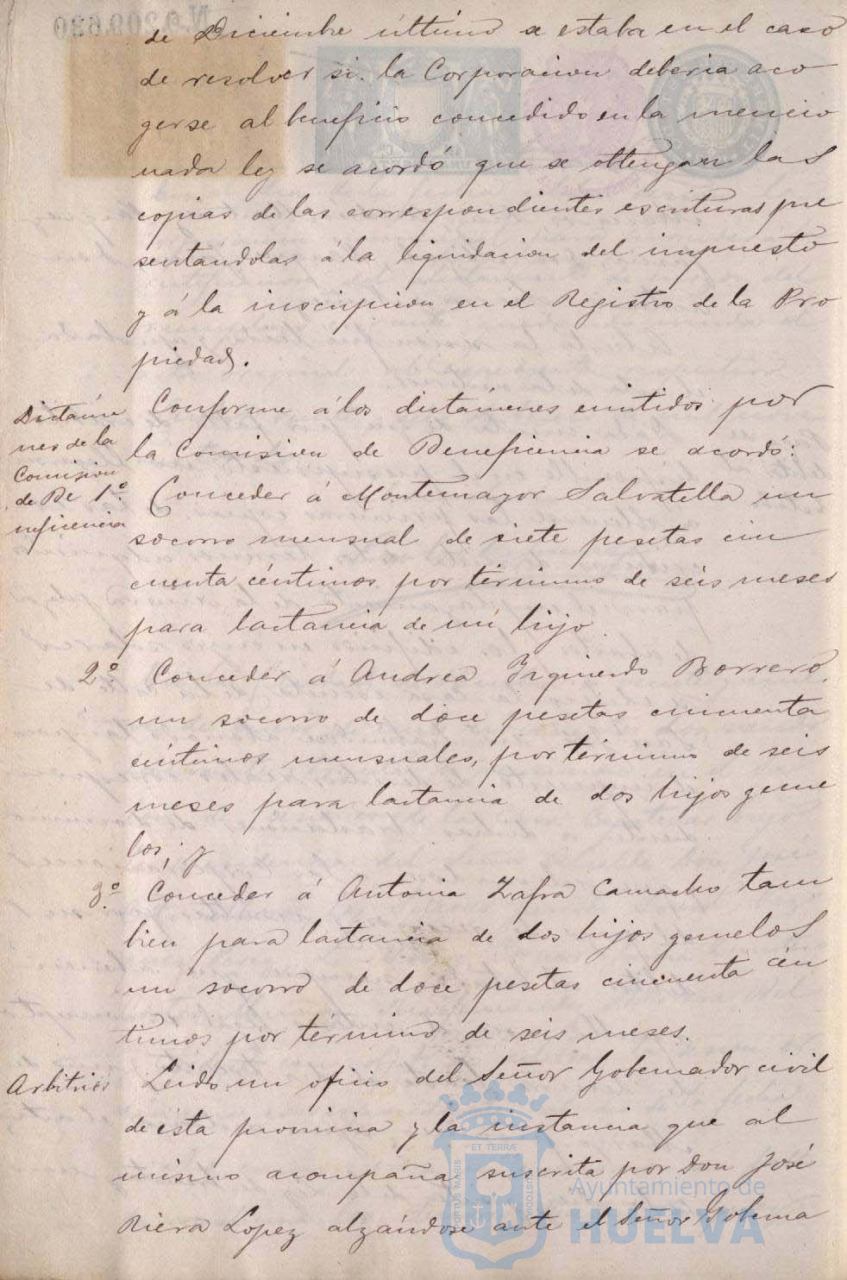 de Diciembre último se estaba en el caso
de resolver si la Corporacion deberia aco
gerse al beneficio concedido en la mencio
nada ley se acordó que se obtengan las
copias de las correspondientes escrituras pre
sentándolas á la liquidacion del impuesto
y á la inscripcion en el Registro de la Pro
piedad.
Dictáme
nes de la
Comision
de Be
neficencia
Conforme á los dictámenes emitidos por
la Comision de Beneficencia se acordó:
1º Conceder á Montemayor Salvatella un
socorro mensual de siete pesetas cin
cuenta céntimos por término de seis meses
para lactancia de un hijo.
2º Conceder á Andrea Izquierdo Borrero,
un socorro de doce pesetas cincuenta
céntimos mensuales, por término de seis
meses para lactancia de dos hijos geme
los; y
3º Conceder á Antonia Zafra Camacho tam
bien para lactancia de dos hijos gemelos
un socorro de doce pesetas cincuenta cén
timos por término de seis meses.
Arbitrios
Leido un oficio del Señor Gobernador civil
de esta provincia y la instancia que al
mismo acompaña suscrita por Don José
Riera Lopez alzándose ante el Señor Goberna
Nº 0.209.630
ET TERRÆ
Ayuntamiento de
HUELVA